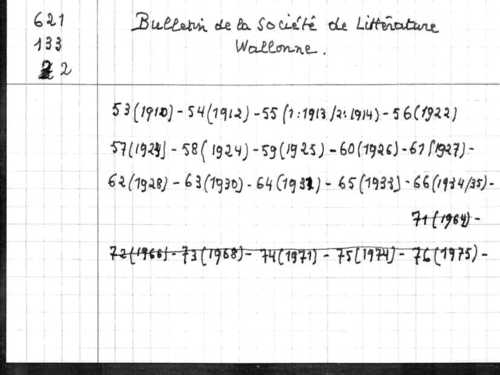 621
133
2 2
Bulletin de la Société de Littérature
Wallonne.
53(1910) - 54(1912) - 55(1:1913/2:1914) - 56(1922)
57(1923) - 58(1924) - 59(1925) - 60(1926) - 61(1927) -
62(1928) - 63(1930) - 64(1932) - 65(1933) - 66(1934/35) -
71(1964) -
72(1966) - 73(1968) - 74(1971) - 75(1974) - 76(1975) -